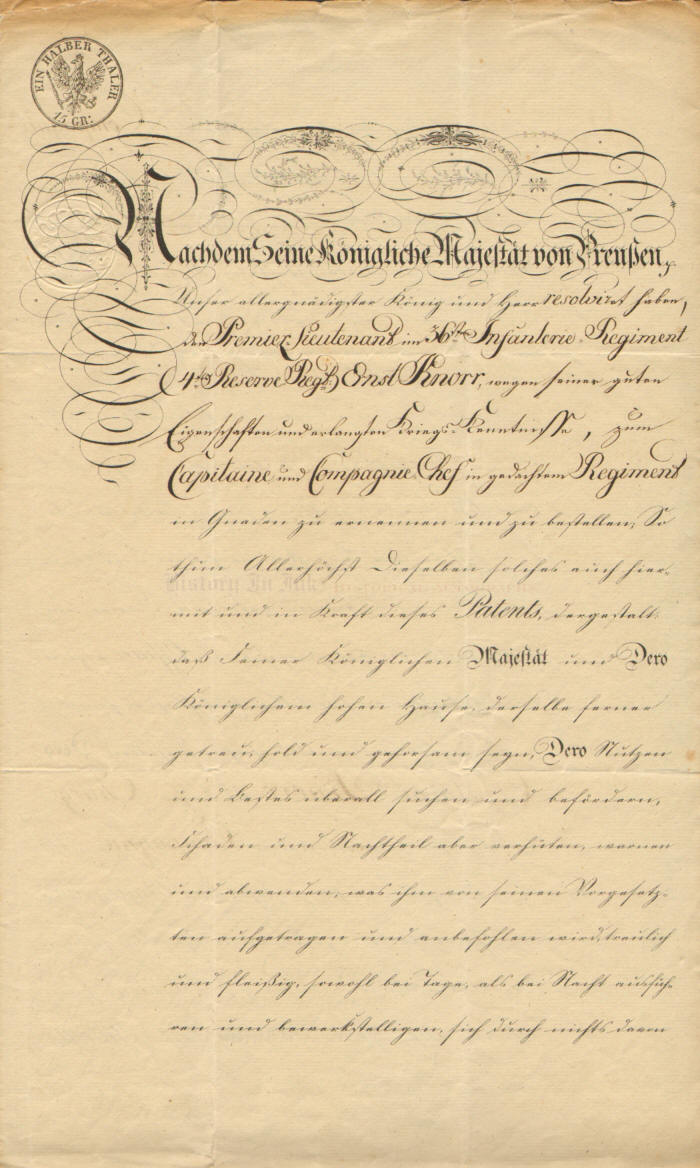 EIN HALBER THALER
15 GR:
Nachdem Seine Königliche Majestät von Preußen,
Unser allergnädigster König und Herr resolviret haben,
den Premier-Lieutenant im 36ten Infanterie-Regiment
(4tes Reserve Regt.) Ernst Knorr, wegen seiner guten
Eigenschaften und erlangten Kriegs-Kenntnisse, zum
Capitaine und Compagnie-Chef in gedachtem Regiment
in Gnaden zu ernennen und zu bestellen; So
thun Allerhöchst Dieselben solches auch hier-
mit und in Kraft dieses Patents, dergestalt:
daß Seiner Königlichen Majestät und Dero
Königlichem hohen Hause, derselbe ferner
getreu, hold und gehorsam seyn, Dero Nutzen
und Bestes überall suchen und befördern,
Schaden und Nachtheil aber verhüten, warnen
und abwenden, was ihm von seinen Vorgesetz-
ten aufgetragen und anbefohlen wird, treulich
und fleißig, sowohl bei Tage, als bei Nacht ausfüh-
ren und bewerkstelligen, sich durch nichts davon
History In Ink